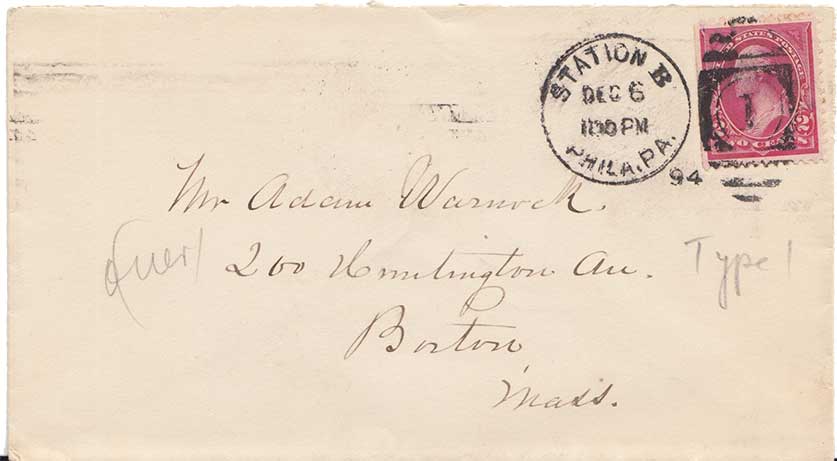 STATION B
DEC 6
PHILA, PA.
94
UNITED STATES POSTAGE
2
Mr Adam Warnock.
200 Huntington Av.
Boston
Mass.
Type 1